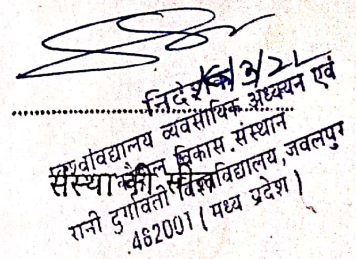 निदेशक
16/3/22
विश्वविद्यालय व्यवसायिक अध्ययन एवं
कौशल विकास संस्थान
संस्था की सील
रानी दुर्गावती विश्वविद्यालय, जबलपुर
482001 (मध्य प्रदेश)